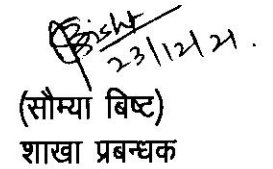 Bisht
23/12/21.
(सौम्या बिष्ट)
शाखा प्रबन्धक